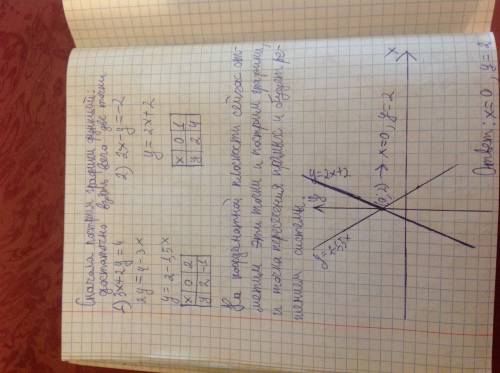 Сначала построим графики функций:
достаточно взять всего две точки
1) 3x+2y=4
2y=4-3x
y=2-1,5x
x 0 2
y 2 -1
2) 2x-y=-2
y=2x+2
x 0 1
y 2 4
На координатной плоскости сейчас от-
метим эти точки и построим графики,
и точка пересечения прямых и будет ре-
шением системы.
y
y=2x+2
(0;2) → x=0, y=2
x
Ответ: x=0 y=2